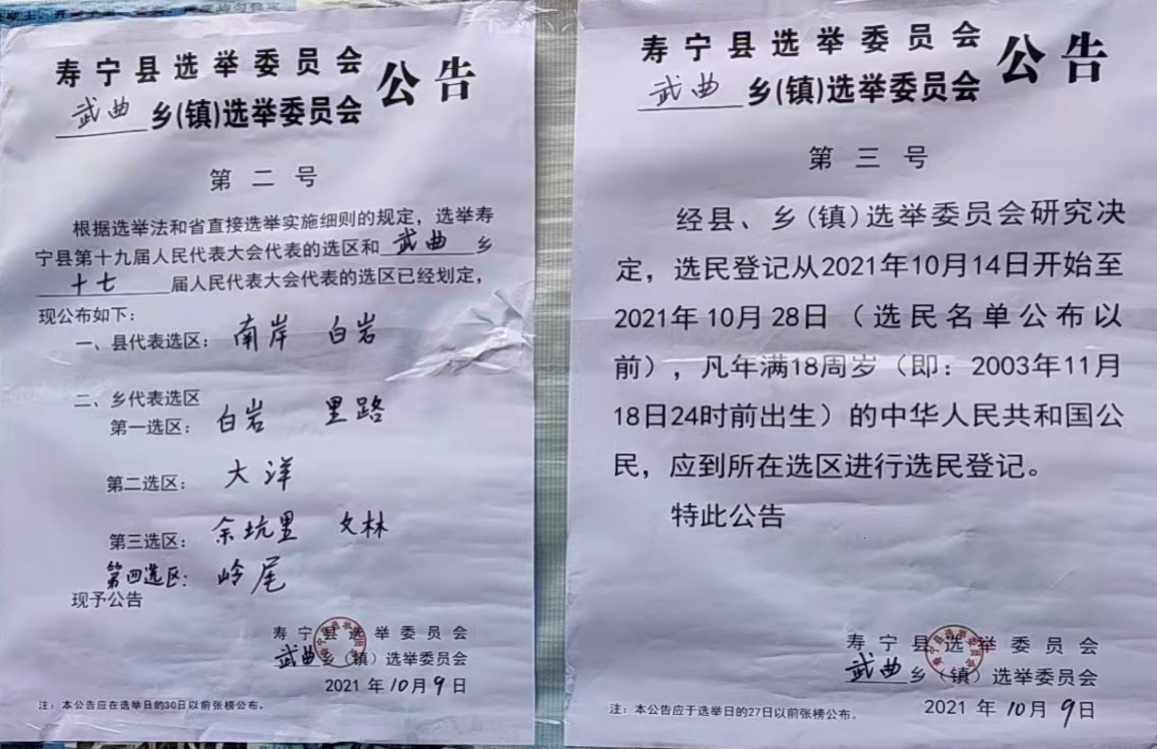 寿宁县选举委员会
武曲乡(镇)选举委员会
公告
第二号
根据选举法和省直接选举实施细则的规定，选举寿
宁县第十九届人民代表大会代表的选区和武曲乡
十七届人民代表大会代表的选区已经划定，
现公布如下：
一、县代表选区：南岸 白岩
二、乡代表选区
第一选区：白岩 里路
第二选区：大洋
第三选区：余坑里 文林
第四选区：岭尾
现予公告
寿宁县选举委员会
武曲乡（镇）选举委员会
2021年10月9日
注：本公告应在选举日的30日以前张榜公布。
寿宁县选举委员会
武曲乡(镇)选举委员会
公告
第三号
经县、乡(镇)选举委员会研究决
定，选民登记从2021年10月14日开始至
2021年10月28日（选民名单公布以
前），凡年满18周岁（即：2003年11月
18日24时前出生）的中华人民共和国公
民，应到所在选区进行选民登记。
特此公告
寿宁县选举委员会
武曲乡（镇）选举委员会
2021年10月9日
注：本公告应于选举日的27日以前张榜公布。